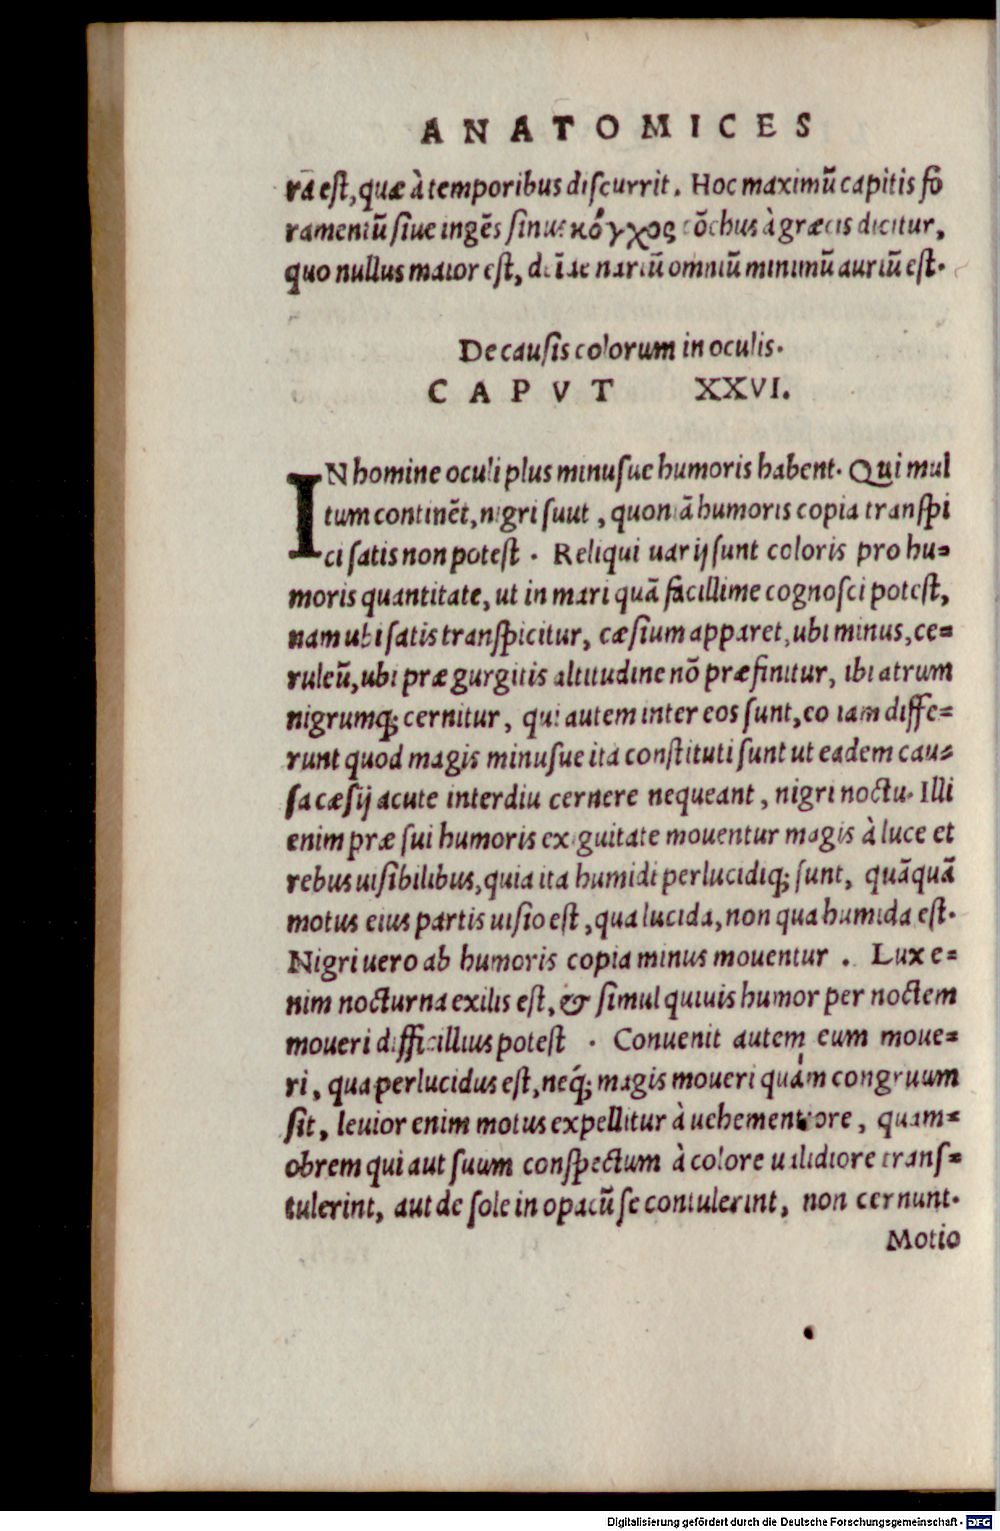 ANATOMICES
rā est, quæ à temporibus discurrit. Hoc maximū capitis fo
ramentū siue ingēs sinus κόγχος cōchus à græcis dicitur,
quo nullus maior est, deīde nariū omniū minimū auriū est.
De causis colorum in oculis.
CAPVT XXVI.
IN homine oculi plus minusue humoris habent. Qui mul
tum continēt, nigri suut, quoniā humoris copia transpi
ci satis non potest. Reliqui uarij sunt coloris pro hu=
moris quantitate, ut in mari quā facillime cognosci potest,
nam ubi satis transpicitur, cæsium apparet, ubi minus, ce=
ruleū, ubi præ gurgitis altitudine nō præfinitur, ibi atrum
nigrumq; cernitur, qui autem inter eos sunt, eo iam diffe=
runt quod magis minusue ita constituti sunt ut eadem cau=
sa cæsij acute interdiu cernere nequeant, nigri noctu. Illi
enim præ sui humoris exiguitate mouentur magis à luce et
rebus uisibilibus, quia ita humidi perlucidiq; sunt, quāquā
motus eius partis uisio est, qua lucida, non qua humida est.
Nigri uero ab humoris copia minus mouentur. Lux e=
nim nocturna exilis est, & simul quiuis humor per noctem
moueri difficillius potest. Conuenit autem eum moue=
ri, qua perlucidus est, neq́; magis moueri quàm congruum
sit, leuior enim motus expellitur à uehementiore, quam=
obrem qui aut suum conspectum à colore ualidiore trans=
tulerint, aut de sole in opacū se contulerint, non cernunt.
Motio
Digitalisierung gefördert durch die Deutsche Forschungsgemeinschaft - DFG